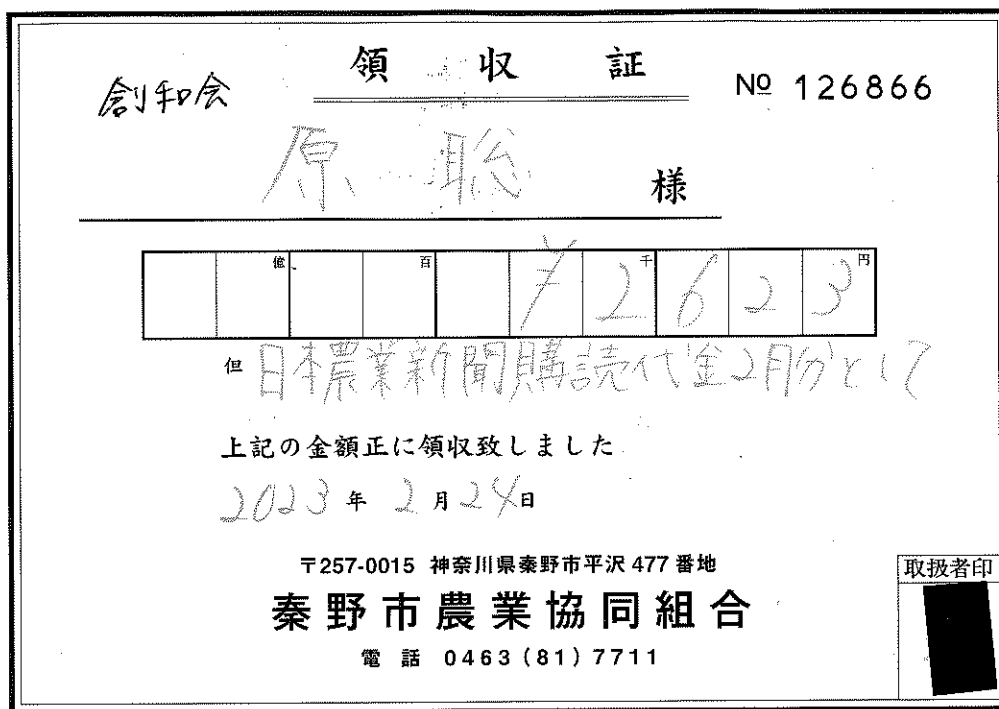 領収証
№ 126866
創和会
原 聡 様
億 百 千 円
¥2623
但 日本農業新聞購読代金2月分として
上記の金額正に領収致しました
2023年2月24日
〒257-0015 神奈川県秦野市平沢477番地
秦野市農業協同組合
電話 0463(81)7711
取扱者印